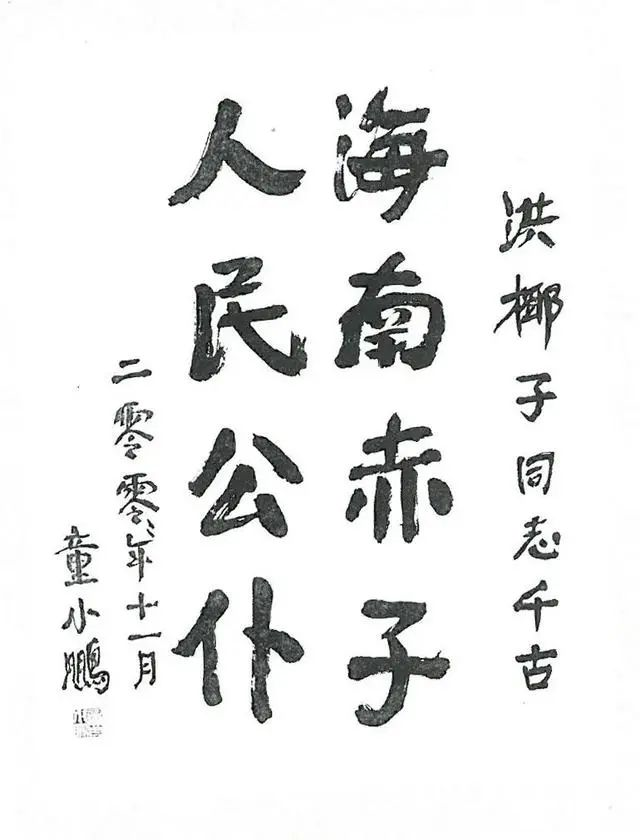 洪椰子同志千古
海南赤子
人民公仆
二零零〻年十一月
童小鹏